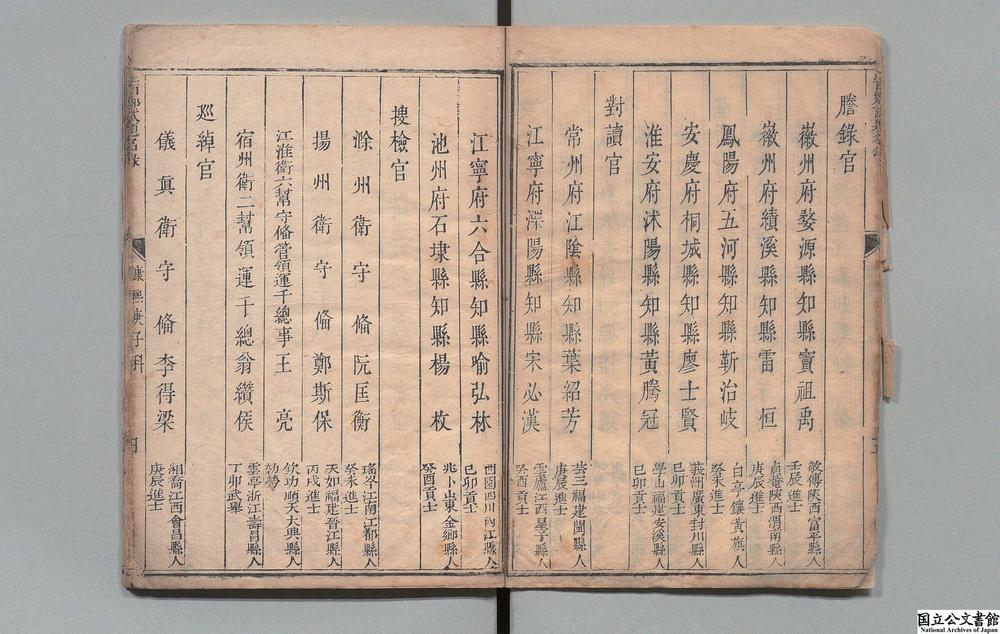 謄錄官
徽州府婺源縣知縣竇祖禹
敬傳陝西富平縣人
壬辰進士
徽州府績溪縣知縣雷恒
貞菴陝西渭南縣人
庚辰進士
鳳陽府五河縣知縣靳治岐
白亭鑲黃旗人
癸未進士
安慶府桐城縣知縣廖士賢
義州廣東封川縣人
己卯貢士
淮安府沭陽縣知縣黃騰冠
學山福建安溪縣人
己卯貢士
對讀官
常州府江陰縣知縣葉紹芳
芸三福建閩縣人
庚辰進士
江寧府溧陽縣知縣宋必漢
雲廬江西星子縣人
癸酉貢士
江寧府六合縣知縣喻弘林
酉園四川內江縣人
己卯貢士
池州府石埭縣知縣楊枚
兆卜山東金鄉縣人
癸酉貢士
搜檢官
滁州衛守備阮匡衡
瑤岑江南江都縣人
癸未進士
揚州衛守備鄭斯保
天如福建晉江縣人
丙戌進士
江淮衛六幫守備管領運千總事王亮
欽功順天大興縣人
効勞
宿州衛二幫領運千總翁纘侯
雲亭浙江壽昌縣人
丁卯武舉
廵綽官
儀真衛守備李得梁
湘喬江西會昌縣人
庚辰進士
康熙庚子科
四
国立公文書館
National Archives of Japan